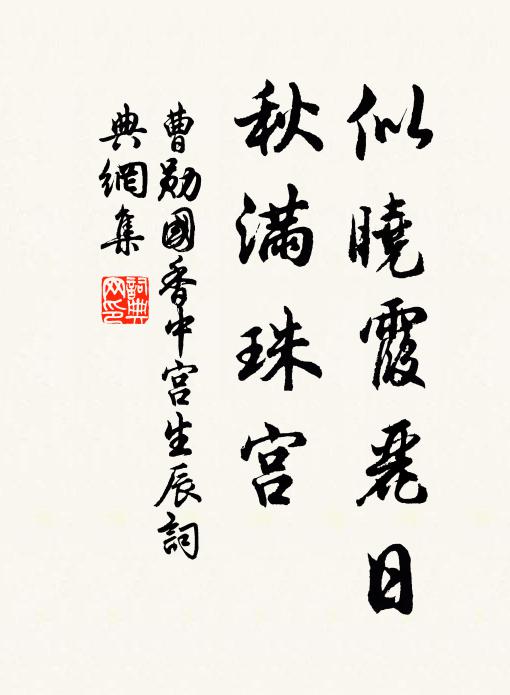 似曉霞麗日
秋滿珠宮
曹勛國香中宮生辰詞
典網集
詞典
网印